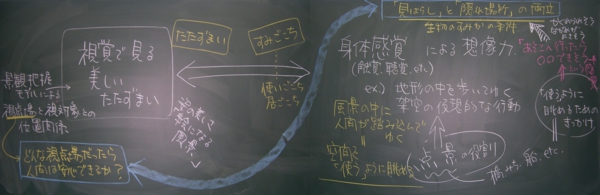 視覚で見る
美しい
たたずまい
景観把握
モデルによる
視点場と視対象との
位置関係
どんな視点場だったら
人間は安心できるか?
たたずまい
すみごこち
使いごこち
居ごこち
「見はらし」と「隠れ場所」の両立
生物のすみかの条件
身体感覚による想像力
(触覚、聴覚、etc.)
ex) 地形の中を歩いてゆく
架空の仮想的な行動
風景の中に
人間が踏み込んで
ゆく
空間を
"使う"ように眺める
点景の役割
"使う"ように
眺めるための
きっかけ
橋、みち、船、etc.